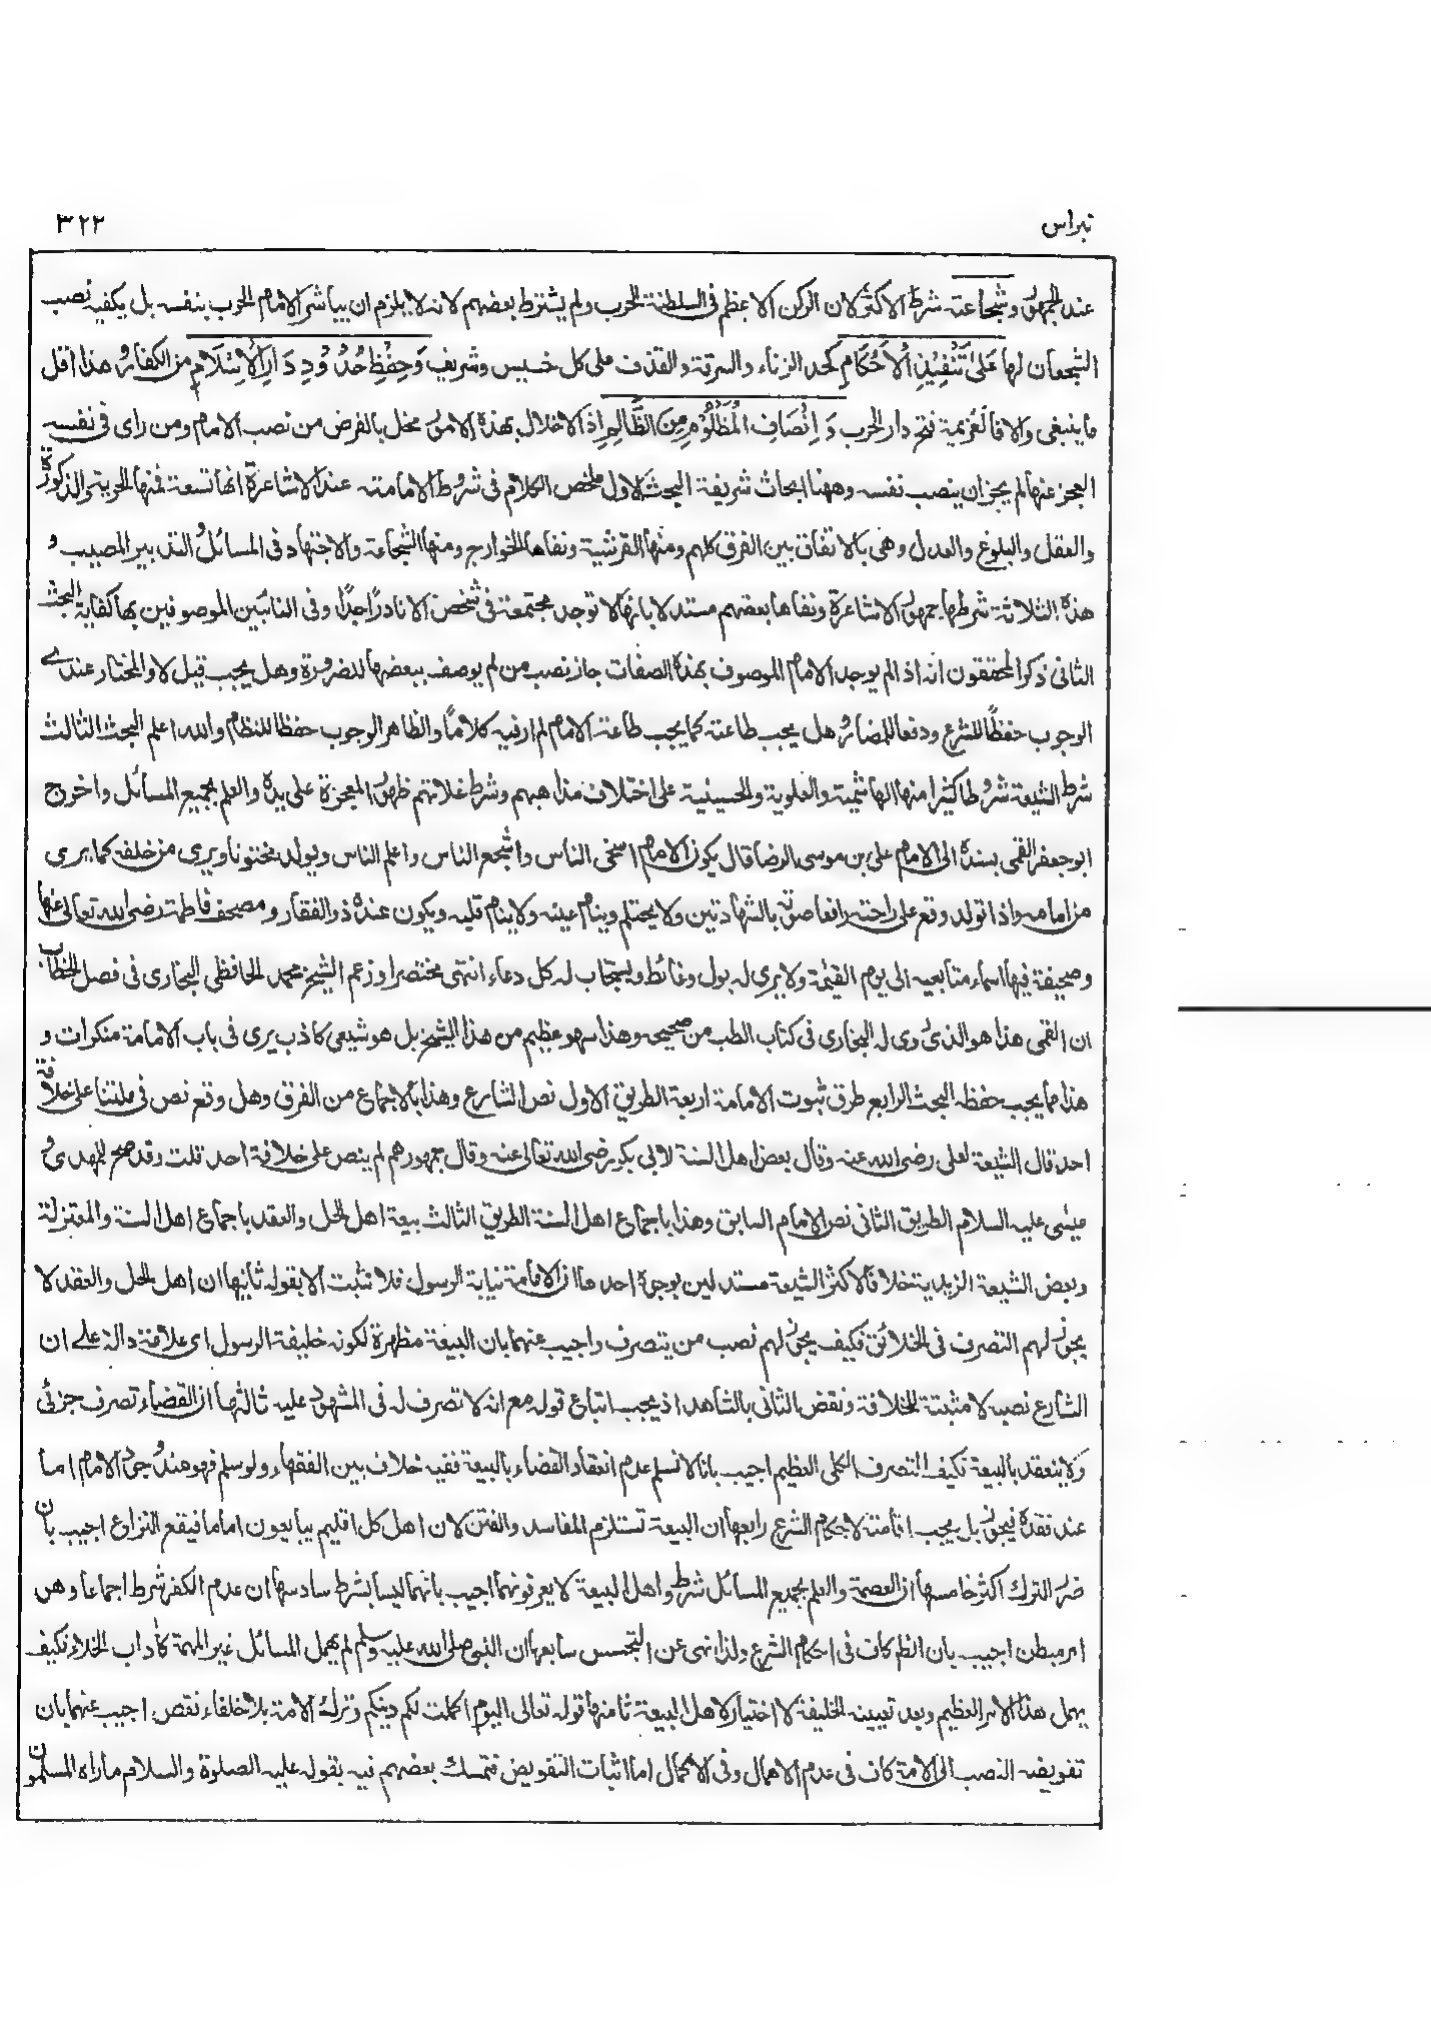 نبراس
٣٢٢
عند الجمهور وشجاعته شرط الاكثر لان الركن الاعظم فى السلطنة الحرب ولم يشترط بعضهم لانه لا يلزم ان يباشر الامام الحرب بنفسه بل يكفيه نصب
الشجعان لها عَلىٰ تَنْفِيْذِ الْاَحْكَامِ كحد الزناء والسرقة والقذف على كل خسيس وشريف وَحِفْظِ حُدُوْدِ دَارِ الْاِسْلَامِ من الكفار هذا اقل
ما ينبغى والا فالعزيمة فتح دار الحرب وَ اِنْصَافِ الْمَظْلُوْمِ مِنَ الظَّالِمِ اذ الاخلال بهذه الامور مخل بالغرض من نصب الامام ومن راى فى نفسه
العجز عنها لم يجز ان ينصب نفسه وههنا ابحاث شريفة البحث الاول ملخص الكلام فى شروط الامامة عند الاشاعرة انها تسعة فمنها الحرية والذكورة
والعقل والبلوغ والعدل وهى بالاتفاق بين الفرق كلهم ومنها القرشية ونفاها الخوارج ومنها الشجاعة والاجتهاد فى المسائل والتدبير المصيب و
هذه الثلاثة شرطها جمهور الاشاعرة ونفاها بعضهم مستدلا بانها لا توجد مجتمعة فى شخص الا نادرًا جدًا وفى النائبين الموصوفين بها كفاية البحث
الثانى ذكر المحققون انه اذا لم يوجد الامام الموصوف بهذه الصفات جاز نصب من لم يوصف ببعضها للضرورة وهل يجب قيل لا والمختار عندے
الوجوب حفظًا للشرع ودفعا للمضار هل يجب طاعته كما يجب طاعة الامام لم ار فيه كلامًا والظاهر الوجوب حفظا للنظام والله اعلم البحث الثالث
شرط الشيعة شروطا كثيرا منها الهاشمية والعلوية والحسينية على اختلاف مذاهبهم وشرط غلاتهم ظهور المعجزة على يده والعلم بجميع المسائل واخرج
ابو جعفر القمى بسنده الى الامام على بن موسى الرضا قال يكون الامام اسخى الناس واشجع الناس واعلم الناس ويولد مختونا ويرى من خلفه كما يرى
من امامه واذا تولد وقع على راحته رافعا صوته بالشهادتين ولا يحتلم وينام عينه ولا ينام قلبه ويكون عنده ذو الفقار و مصحف فاطمة رضى الله تعالى عنها
وصحيفة فيها اسماء متابعيه الى يوم القيٰمة ولا يرى له بول وغائط ويستجاب له كل دعاء انتهى مختصرا وزعم الشيخ محمد الحافظى البخارى فى فصل الخطاب
ان القمى هذا هو الذى روى له البخارى فى كتاب الطب من صحيحه وهذا سهو عظيم من هذا الشيخ بل هو شيعى كاذب يرى فى باب الامامة منكرات و
هذا مما يجب حفظه البحث الرابع طرق ثبوت الامامة اربعة الطريق الاول نص الشارع وهذا بالاجماع من الفرق وهل وقع نص فى ملتنا على خلافة
احد قال الشيعة لعلى رضى الله عنه وقال بعض اهل السنة لابى بكر رضى الله تعالى عنه وقال جمهورهم لم ينص على خلافة احد قلت وقد صح للمهدى و
عيسٰى عليه السلام الطريق الثانى نص الامام السابق وهذا باجماع اهل السنة الطريق الثالث بيعة اهل الحل والعقد باجماع اهل السنة والمعتزلة
وبعض الشيعة الزيدية خلافا لاكثر الشيعة مستدلين بوجوه احدها ان الامامة نيابة الرسول فلا تثبت الا بقوله ثانيها ان اهل الحل والعقد لا
يجوز لهم التصرف فى الخلائق فكيف يجوز لهم نصب من يتصرف واجيب عنهما بان البيعة مظهرة لكونه خليفة الرسول اى علامة دالة علے ان
الشارع نصبه لا مثبتة للخلافة ونقض الثانى بالشاهد اذ يجب اتباع قوله مع انه لا تصرف له فى المشهود عليه ثالثها ان القضاء تصرف جزئى
ولا ينعقد بالبيعة فكيف التصرف الكلى العظيم اجيب بانا لا نسلم عدم انعقاد القضاء بالبيعة ففيه خلاف بين الفقهاء ولو سلم فهو عند وجود الامام اما
عند فقده فيجوز بل يجب اقامة لاحكام الشرع رابعها ان البيعة تستلزم المفاسد والفتن لان اهل كل اقليم يبايعون اماما فيقع النزاع اجيب بان
ضرر الترك اكثر خامسها ان العصمة والعلم بجميع المسائل شرط واهل البيعة لا يعرفونهما اجيب بانهما ليسا بشرط سادسها ان عدم الكفر شرط اجماعا وهو
امر مبطن اجيب بان الظن كاف فى احكام الشرع ولذا نهى عن التجسس سابعها ان النبى صلى الله عليه وسلم لم يهمل المسائل غير المهمة كاٰداب الخلاء فكيف
يهمل هذا الامر العظيم وبعد تعيينه الخليفة لا اختيار لاهل البيعة ثامنها قوله تعالى اليوم اكملت لكم دينكم وترك الامة بلا خلفاء نقص اجيب عنهما بان
تفويضه النصب الى الامة كاف فى عدم الاهمال وفى الاكمال اما اثبات التفويض فتمسك بعضهم فيه بقوله عليه الصلوة والسلام ما راه المسلمون